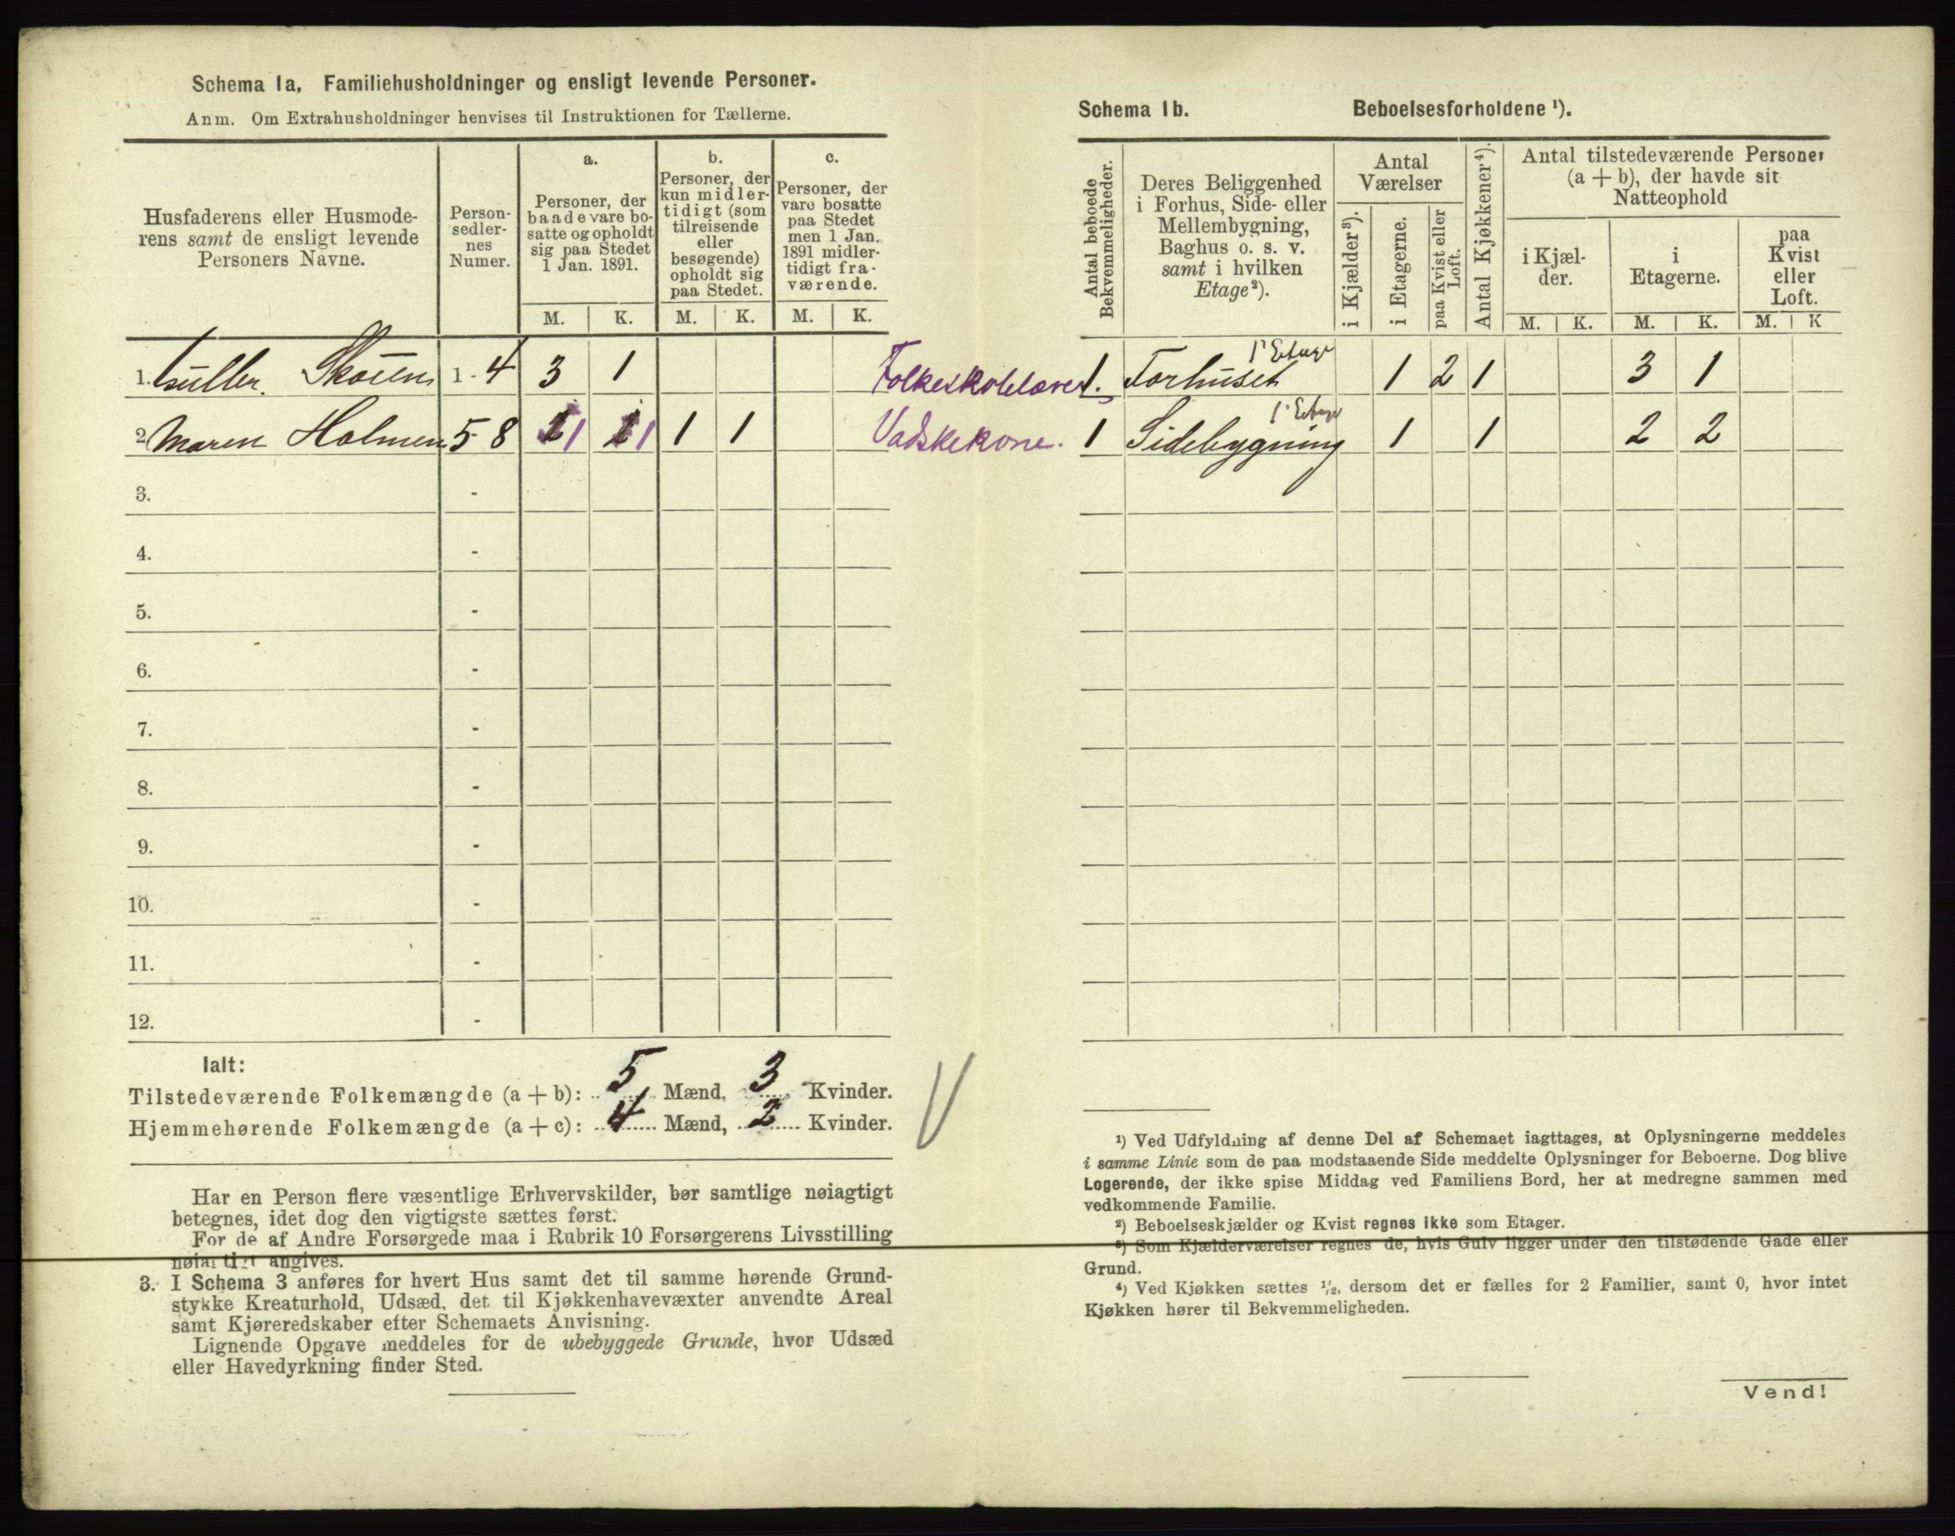 Schema 1a, Familiehusholdninger og ensligt levende Personer.
Anm. Om Extrahusholdninger henvises til Instruktionen for Tællerne.
Husfaderens eller Husmode-
rens samt de ensligt levende
Personers Navne.
Person-
sedler-
nes
Numer.
a.
Personer, der
baade vare bo-
satte og opholdt
sig paa Stedet
1 Jan. 1891.
b.
Personer, der
kun midler-
tidigt (som
tilreisende
eller
besøgende)
opholdt sig
paa Stedet.
c.
Personer, der
vare bosatte
paa Stedet
men 1 Jan.
1891 midler-
tidigt fra-
værende.
M. K. M. K. M. K.
1. Skoien 1 - 4 3 1 Folkeskolelærer.
2. Maren Holmen 5 - 8 1 1 1 1 Vadskekone.
3. -
4. -
5. -
6. -
7. -
8. -
9. -
10. -
11. -
12. -
Ialt:
Tilstedeværende Folkemængde (a + b): 5 Mænd, 3 Kvinder.
Hjemmehørende Folkemængde (a + c): 4 Mænd, 2 Kvinder.
Har en Person flere væsentlige Erhvervskilder, bør samtlige nøiagtigt
betegnes, idet dog den vigtigste sættes først.
For de af Andre Forsørgede maa i Rubrik 10 Forsørgerens Livsstilling
nøiagtigt angives.
3. I Schema 3 anføres for hvert Hus samt det til samme hørende Grund-
stykke Kreaturhold, Udsæd, det til Kjøkkenhavevæxter anvendte Areal
samt Kjøreredskaber efter Schemaets Anvisning.
Lignende Opgave meddeles for de ubebyggede Grunde, hvor Udsæd
eller Havedyrkning finder Sted.
Schema 1b. Beboelsesforholdene ¹).
Antal beboede
Bekvemmeligheder.
Deres Beliggenhed
i Forhus, Side- eller
Mellembygning,
Baghus o. s. v.
samt i hvilken
Etage²).
Antal
Værelser
i Kjælder³).
i Etagerne.
paa Kvist eller
Loft.
Antal Kjøkkener⁴).
Antal tilstedeværende Personer
(a + b), der havde sit
Natteophold
i Kjæl-
der.
i
Etagerne.
paa
Kvist
eller
Loft.
M. K. M. K. M. K
1 Forhuset 1' Etage 1 2 1 3 1
1 Sidebygning 1' Etage 1 1 2 2
¹) Ved Udfyldning af denne Del af Schemaet iagttages, at Oplysningerne meddeles
i samme Linie som de paa modstaaende Side meddelte Oplysninger for Beboerne. Dog blive
Logerende, der ikke spise Middag ved Familiens Bord, her at medregne sammen med
vedkommende Familie.
²) Beboelseskjælder og Kvist regnes ikke som Etager.
³) Som Kjælderværelser regnes de, hvis Gulv ligger under den tilstødende Gade eller
Grund.
⁴) Ved Kjøkken sættes ½, dersom det er fælles for 2 Familier, samt 0, hvor intet
Kjøkken hører til Bekvemmeligheden.
Vend!